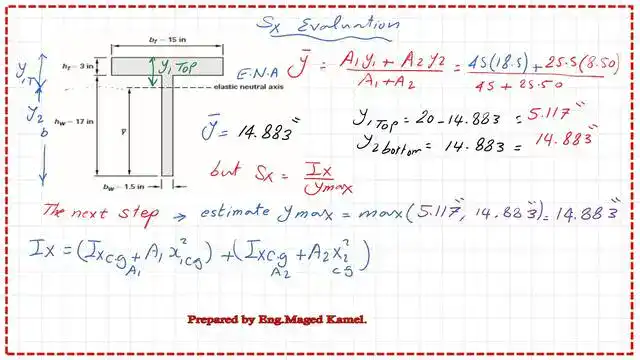 Sx Evaluation
bf – 15 in
hf – 3 in
y1 Top
y1T
E.N.A
elastic neutral axis
y2
b
hw – 17 in
ȳ
bw – 1.5 in
ȳ = A1y1 + A2y2 / A1 + A2 = 45(18.5) + 25.5(8.50) / 45 + 25.50
ȳ = 14.883"
y1 Top = 20 - 14.883 = 5.117"
y2 bottom = 14.883 = 14.883"
but Sx = Ix / ymax
The next step → estimate ymax = max(5.117", 14.883") = 14.883"
Ix = (Ixcg + A1 x1²cg) + (Ixcg + A2 x2²)
A1
A2
cg
Prepared by Eng.Maged Kamel.